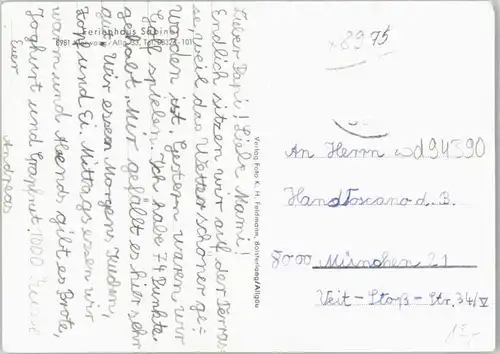 Ferienhaus Sabine
8961 Ma rwang/Allg. 33, Tel. 08328-101
Lieber Papi! Liebe Mami!
Endlich sitzen wir auf der Terras
se, weil das Wetter schöner ge=
worden ist. Gestern waren wir
spielen. Ich habe 74 Punkte
gehabt. Mir gefällt es hier sehr
gut. Wir essen Morgens Kuchen,
und Ei. Mittags essen wir
warm und Abends gilt es Brote,
Joghurt und Grapfruit. 1000 Küsse
Euer
Andreas
Verlag Foto K. H. Feldmaim, Bolsterlang/Allgäu
8975
An Herrn
d94390
Hand Toscano d. B.
8000 München 21
Veit-Stoß-Str. 34/V
1,5,-